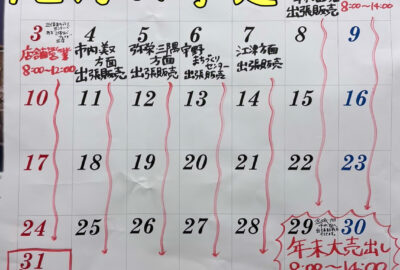 出張販売
8:00〜14:00
3 4 5 6 7 8 9
店舗営業
8:00〜12:00
市内美又
方面
出張販売
弥栄三隅
方面
出張販売
宇野
まちづくり
センター
出張販売
江津方面
出張販売
10 11 12 13 14 15 16
17 18 19 20 21 22 23
24 25 26 27 28 29 30
年末大売出し
8:00〜14:00
31